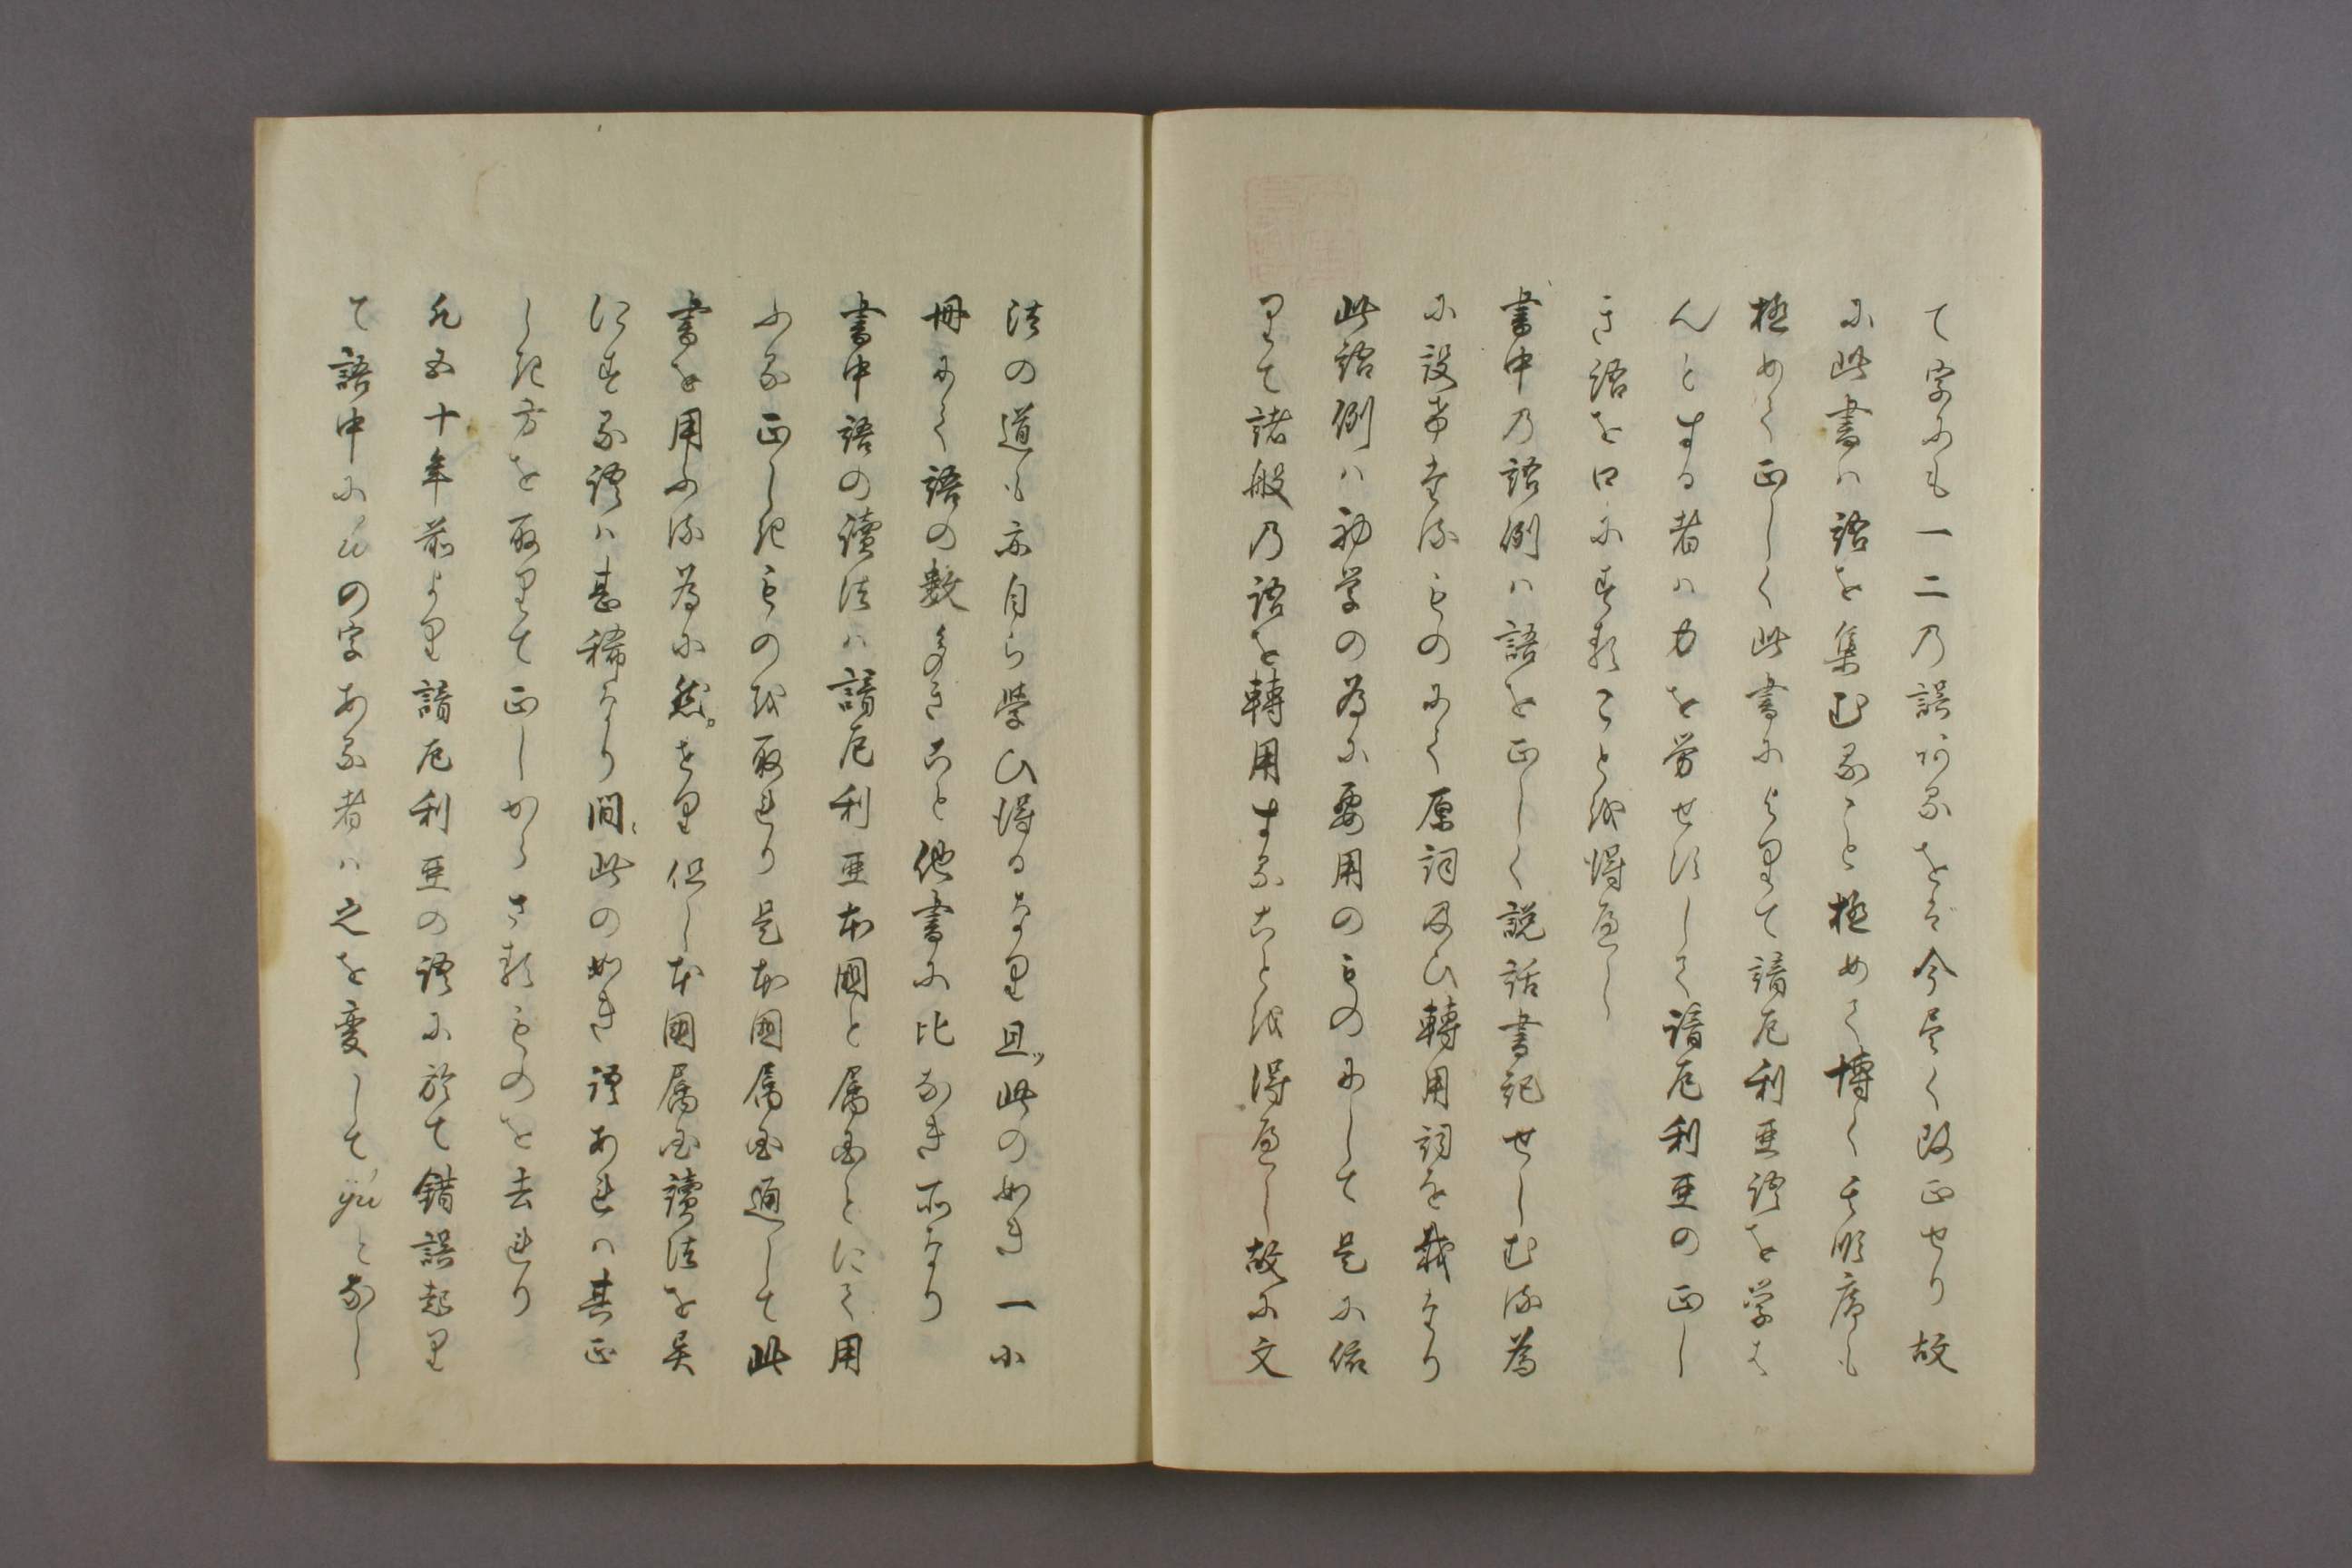 て字にも一二乃誤阿るをは今尽く改正せり故
に此書ハ語を集むること極めて博く其順席も
極めて正しく此書によりて諳厄利亜語を学は
んとする者ハ力を労せすして諳厄利亜の正し
き語を口にすることを得へし
書中乃語例ハ語を正しく説話書記せしむる為
に設けたるものにて原詞及ひ轉用詞を載たり
此語例ハ初学の為に要用のものにして是に依
りて諸般乃語を轉用することを得へし故に文
法の道も亦自ら學ひ得るなり且ツ此の如き一小
冊にて語の数多きこと他書に比なき所なり
書中語の讀法ハ諳厄利亜本國と属国とにて用
ふる正しきものを取れり是本國属国通して此
書を用ふる為に然せり但し本國属国讀法を異
にする語ハ甚稀なり間此の如き語あれハ其正
しき方を取りて正しからさるものを去れり
凡五十年前より諳厄利亜の語に於て錯誤起り
て語中にuの字ある者ハ之を変して yu となし